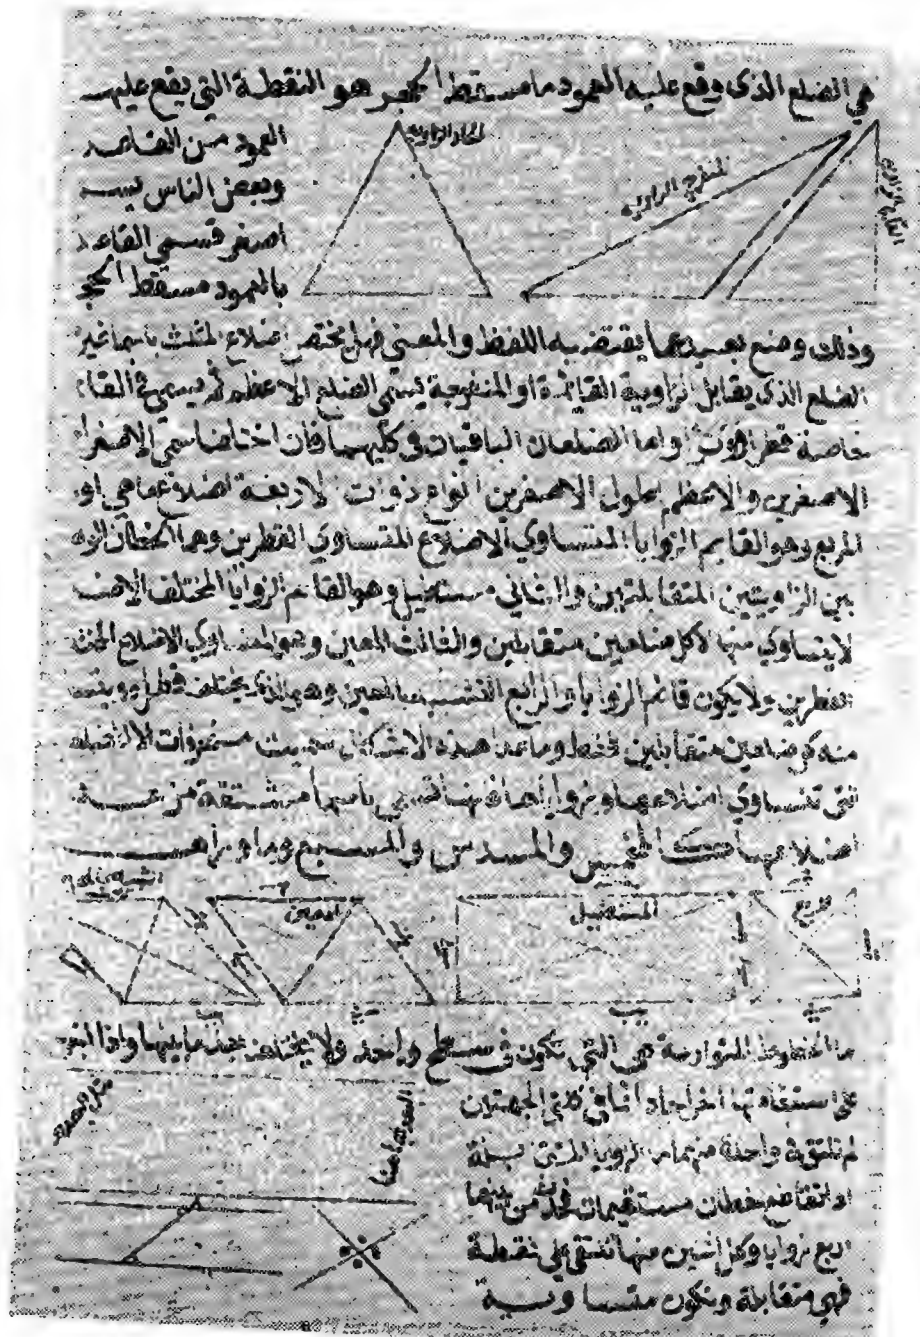 هي الضلع الذي وقع عليه العمود ما مسقط الحجر هو النقطة التي يقع عليها
الحاد الزوايا
المنفرج الزاوية
القائم الزاوية
العمود من القاعد
وبعض الناس يسم
اصغر قسمي القاعد
بالعمود مسقط الحج
وذلك وضع بعيد عما يقتضيه اللفظ والمعنى فهل يختص اضلاع المثلث باسما غير
الضلع الذي يقابل الزاوية القائمة او المنفرجة يسمى الضلع الاعظم ثم يسمى في القا
خاصة قطرا او وترا واما الضلعان الباقيان في كليهما فان اختلفا سمي الاصغر ا
الاصغرين والاعظم بطول الاصغرين انواع ذوات الاربعة اضلاع ما هي او
المربع وهو القايم الزوايا المتساوي الاضلاع المتساوي القطرين وهما الخطان
بين الزاويتين المتقابلتين والثاني مستطيل وهو القايم الزوايا المختلف الاض
لا يتساوى منها الا كل ضلعين متقابلين والثالث المعين وهو المتساوي الاضلاع المخت
القطرين ولا يكون قائم الزوايا والرابع الشبيه بالمعين وهو الذي يختلف قطراه
منه كل ضلعين متقابلين فقط وما عدا هذه الاشكال
تتساوى اضلاعها وزواياها فانها تسمى باسما مشتقة من عد
اضلاعها المخمس والمسدس والمسبع وما وراها
مربع
المستطيل
المعين
الشبيه بالمعين
ما الخطوط المتوازية هي التي تكون في سطح واحد ولا يختلف بعد ما بينها واذا
على استقامتها اخراجا دائما في كلتي الجهتين
لم تلتق ولا واحدة منهما ما الزوايا المتقابلة
اذا تقاطع خطان مستقيمان فحدث من بينهما
اربع زوايا وكل اثنين منها تلتقي على نقطة
فهي متقابلة وتكون متساوية